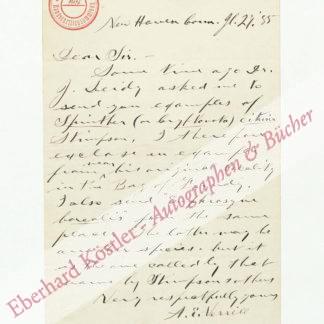 New Haven Conn.
Dear Sir, -
Some time ago Dr.
J. Leidy asked me to
send you examples of
Spinther (or Cryptonota) citrina
Stimpson, I therefore
enclose an example
from near his original locality
in the Bay of Fundy.
I also send
borealis from the same
place. The latter may be
species, but it
is the one called by that
name by Stimpson & others
Very respectfully yours
A. E. Verrill
Eberhard Köstler - Autographen & Bücher